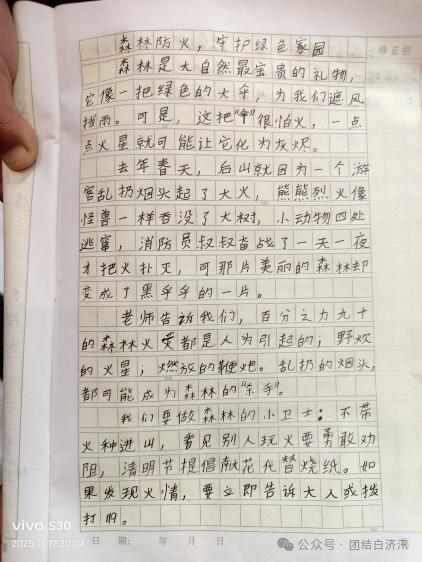 森林防火，守护绿色家园
森林是大自然最宝贵的礼物，
它像一把绿色的大伞，为我们遮风
挡雨。可是，这把"伞"很怕火，一点
点火星就可能让它化为灰烬。
去年春天，后山就因为一个游
客乱扔烟头起了大火，熊熊烈火像
怪兽一样吞没了大树，小动物四处
逃窜，消防员叔叔奋战了一天一夜
才把火扑灭，可那片美丽的森林却
变成了黑乎乎的一片。
老师告诉我们，百分之九九十
的森林火灾都是人为引起的；野炊
的火星；燃放的鞭炮。乱扔的烟头，
都可能成为森林的"杀手"。
我们要做森林的小卫士：不带
火种进山，看见别人玩火要勇敢劝
阻，清明节提倡献花代替烧纸。如
果发现火情，要立即告诉大人或拨
打119。
日期： 年 月 日
vivo S30
2025.11.17 20:04
公众号·团结白济汛